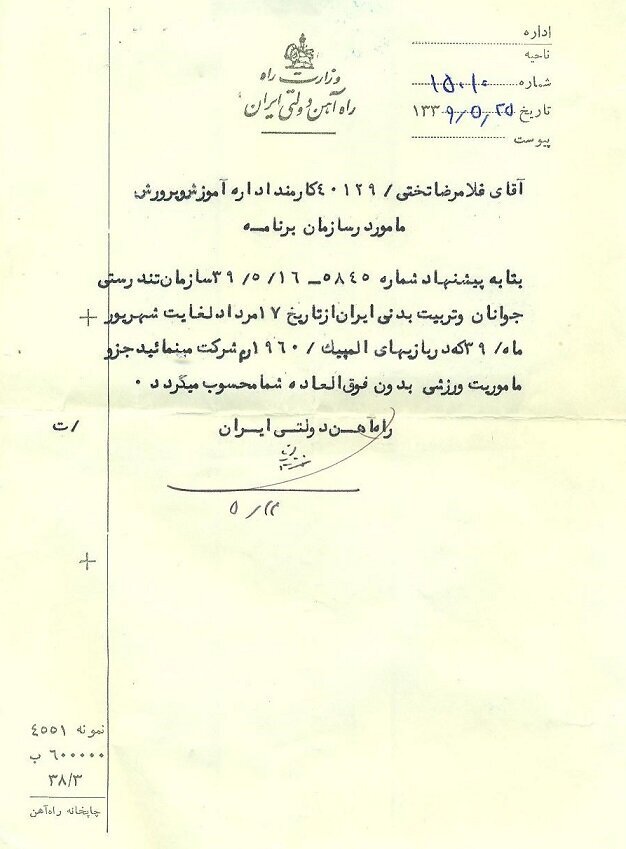 اداره
ناحیه
شماره ۱۵۰۱۰
تاریخ ۱۳۳۹/۵/۲۵
پیوست
وزارت راه
راه آهن دولتی ایران
آقای غلامرضا تختی / ٤٠١٢٩ کارمند اداره آموزش و پرورش
مامور در سازمان برنامه
بنا به پیشنهاد شماره ٥٨٤٥ – ٣٩/٥/١٦ سازمان تندرستی
جوانان و تربیت بدنی ایران از تاریخ ١٧ مرداد لغایت شهریور
ماه / ٣٩ که در بازیهای المپیک / ١٩٦٠ رم شرکت مینمائید جزو
ماموریت ورزشی بدون فوق العاده شما محسوب میگردد ٠
راه آهن دولتی ایران
/ت
نمونه ٤٥٥١
٦٠٠٠٠٠ ب
٣٨/٣
چاپخانه راه‌آهن